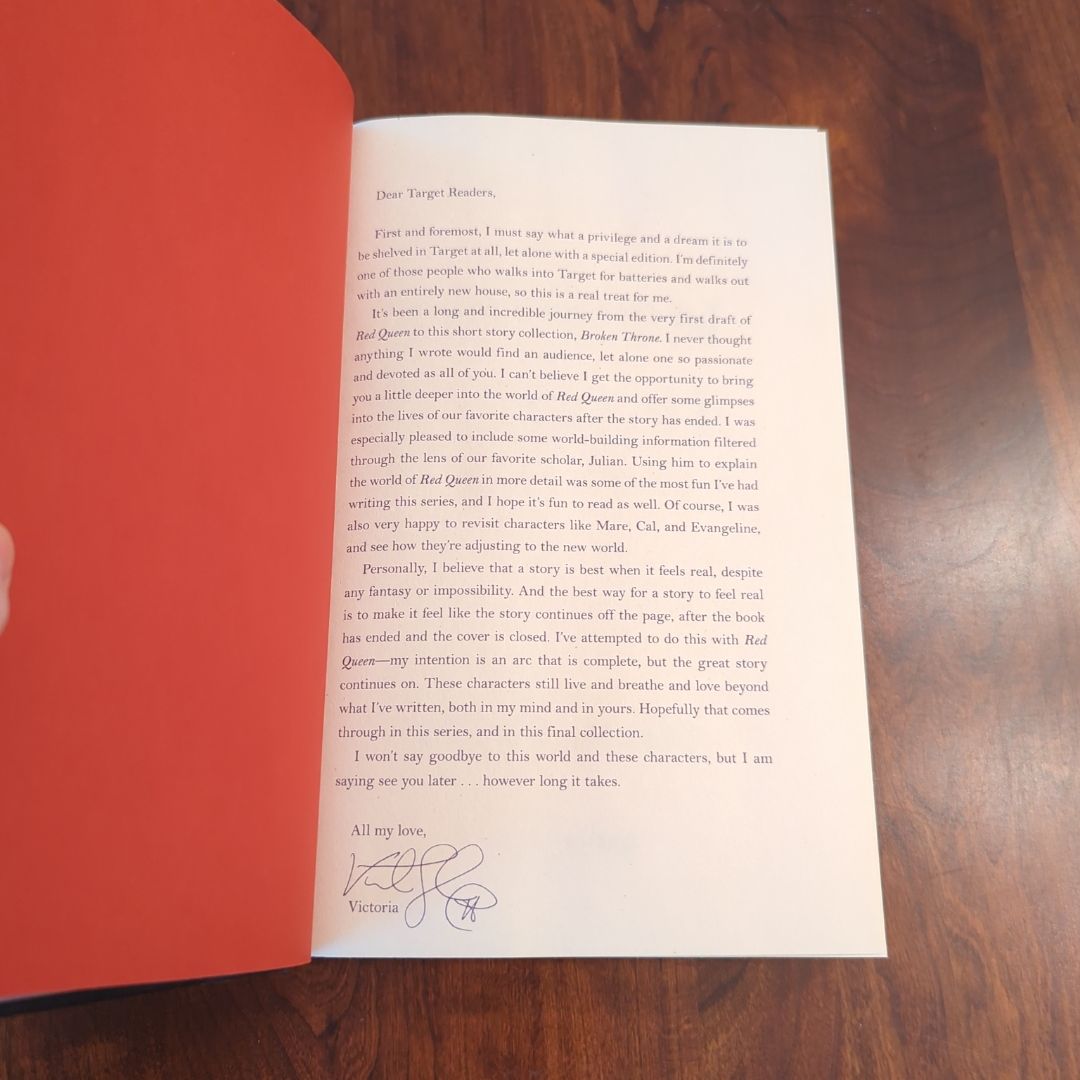 Dear Target Readers,
First and foremost, I must say what a privilege and a dream it is to
be shelved in Target at all, let alone with a special edition. I'm definitely
one of those people who walks into Target for batteries and walks out
with an entirely new house, so this is a real treat for me.
It's been a long and incredible journey from the very first draft of
Red Queen to this short story collection, Broken Throne. I never thought
anything I wrote would find an audience, let alone one so passionate
and devoted as all of you. I can't believe I get the opportunity to bring
you a little deeper into the world of Red Queen and offer some glimpses
into the lives of our favorite characters after the story has ended. I was
especially pleased to include some world-building information filtered
through the lens of our favorite scholar, Julian. Using him to explain
the world of Red Queen in more detail was some of the most fun I've had
writing this series, and I hope it's fun to read as well. Of course, I was
also very happy to revisit characters like Mare, Cal, and Evangeline,
and see how they're adjusting to the new world.
Personally, I believe that a story is best when it feels real, despite
any fantasy or impossibility. And the best way for a story to feel real
is to make it feel like the story continues off the page, after the book
has ended and the cover is closed. I've attempted to do this with Red
Queen—my intention is an arc that is complete, but the great story
continues on. These characters still live and breathe and love beyond
what I've written, both in my mind and in yours. Hopefully that comes
through in this series, and in this final collection.
I won't say goodbye to this world and these characters, but I am
saying see you later . . . however long it takes.
All my love,
Victoria